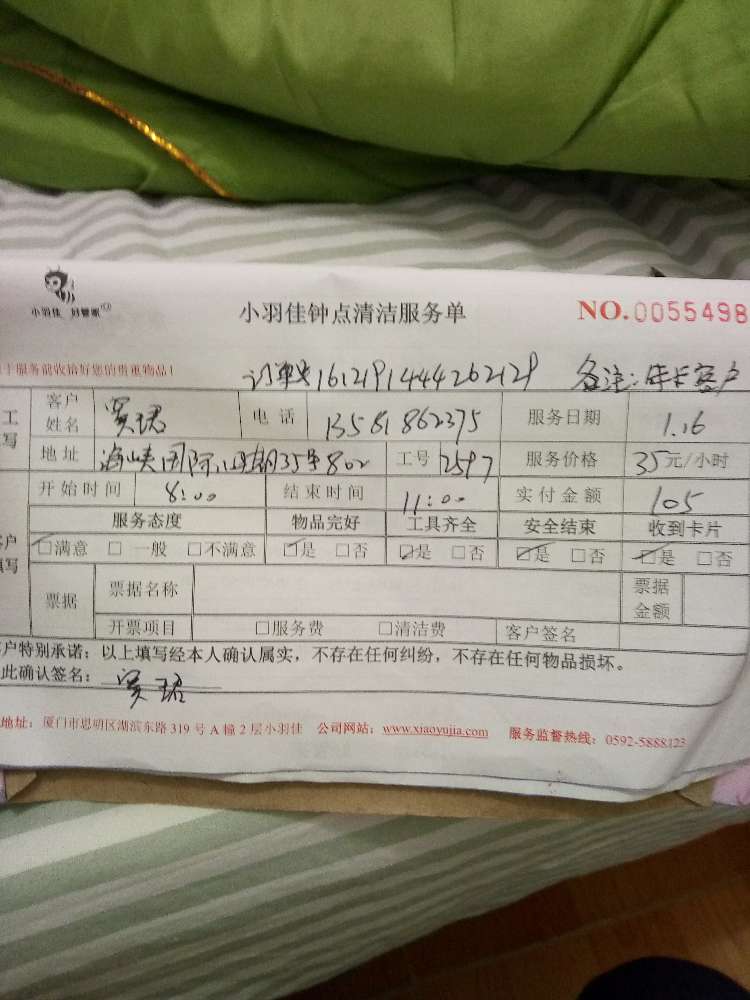 小羽佳 好管家
小羽佳钟点清洁服务单
NO.0055498
服务前收拾好您的贵重物品!
订单号1612191444262129 备注:年卡客户
客户姓名 贾珺 电话 13581862375 服务日期 1.16
地址 海峡国际 35 802 工号 2597 服务价格 35元/小时
开始时间 8:00 结束时间 11:00 实付金额 105
服务态度 物品完好 工具齐全 安全结束 收到卡片
□满意 □一般 □不满意 □是 □否 □是 □否 □是 □否 □是 □否
票据 票据名称 票据金额
开票项目 □服务费 □清洁费 客户签名
户特别承诺:以上填写经本人确认属实,不存在任何纠纷,不存在任何物品损坏。
此确认签名: 贾珺
地址:厦门市思明区湖滨东路319号A幢2层小羽佳 公司网站:www.xiaoyujia.com 服务监督热线:0592-5888123